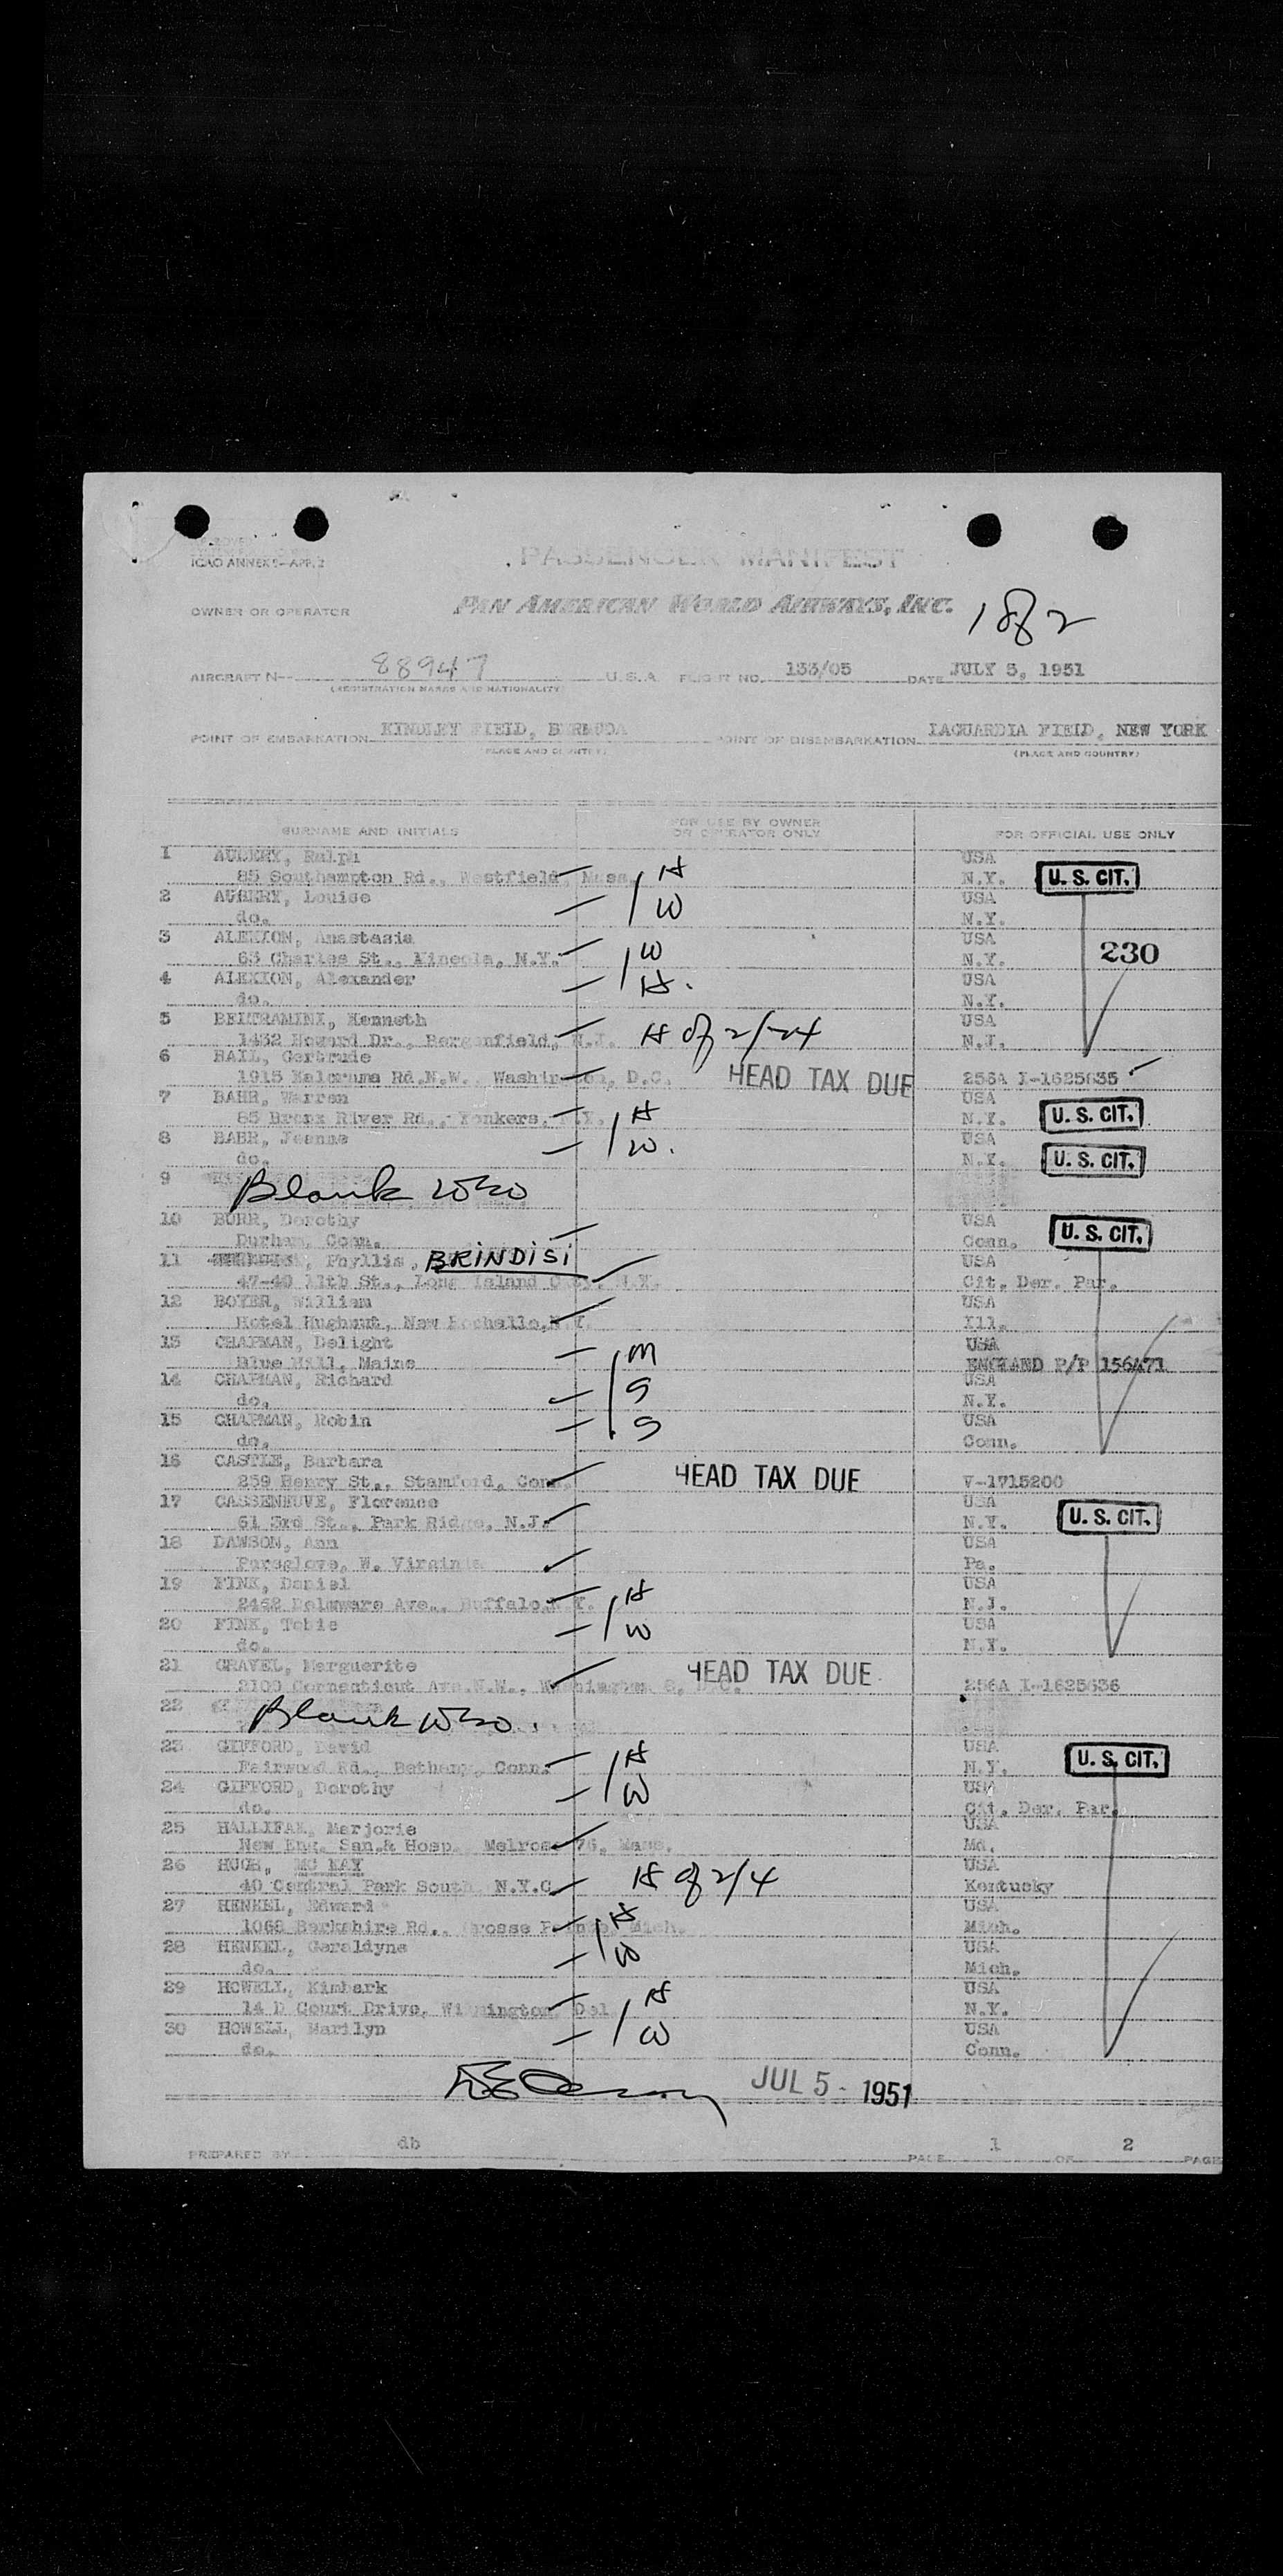 ICAO ANNEX 9—APP. 2
PASSENGER MANIFEST
OWNER OR OPERATOR PAN AMERICAN WORLD AIRWAYS, INC.
1 of 2
AIRCRAFT N-- 88947 U.S.A. FLIGHT NO. 133/05 DATE JULY 5, 1951
(REGISTRATION MARKS AND NATIONALITY)
POINT OF EMBARKATION KINDLEY FIELD, BERMUDA POINT OF DISEMBARKATION LAGUARDIA FIELD, NEW YORK
(PLACE AND COUNTRY) (PLACE AND COUNTRY)
SURNAME AND INITIALS FOR USE BY OWNER OR OPERATOR ONLY FOR OFFICIAL USE ONLY
1 AUBERY, Ralph USA
85 Southampton Rd., Westfield, Mass. H N.Y. U. S. CIT.
2 AUBERY, Louise W USA
do. N.Y.
3 ALEXION, Anastasia W USA
63 Charles St., Mineola, N.Y. N.Y. 230
4 ALEXION, Alexander H. USA
do. N.Y.
5 BELTRAMINI, Kenneth USA
1432 Howard Dr., Bergenfield, N.J. H of 2/24 N.J.
6 HAIL, Gertrude
1915 Kalorama Rd.N.W., Washington, D.C. HEAD TAX DUE 256A I-1625635
7 BAHR, Warren USA
85 Bronx River Rd., Yonkers, N.Y. H N.Y. U. S. CIT.
8 BAHR, Jeanne W. USA
do. N.Y. U. S. CIT.
9 Blank
10 BURR, Dorothy USA
Durham, Conn. Conn. U. S. CIT.
11 Phyllis. BRINDISI USA
47-40 11th St., Long Island City, N.Y. Cit. Der. Par.
12 BOYER, William USA
Hotel New Rochelle, N.Y. Ill.
13 CHAPMAN, Delight M USA
Blue Hill, Maine ENGLAND P/P 156471
14 CHAPMAN, Richard S USA
do. N.Y.
15 CHAPMAN, Robin S USA
do. Conn.
16 CASTLE, Barbara
259 Henry St., Stamford, Conn. HEAD TAX DUE V-1715200
17 CASSENEUVE, Florence USA
61 3rd St., Park Ridge, N.J. N.Y. U. S. CIT.
18 DAWSON, Ann USA
Pursglove, W. Virginia Pa.
19 FINK, Daniel USA
2462 Delaware Ave., Buffalo, N.Y. H N.J.
20 FINK, Tobie W USA
do. N.Y.
21 GRAVEL, Marguerite
2100 Connecticut Ave.N.W., Washington 8, D.C. HEAD TAX DUE 256A I-1625636
22 Blank
23 GIFFORD, David USA
Fairwood Rd., Bethany, Conn. H N.Y. U. S. CIT.
24 GIFFORD, Dorothy W USA
do. Cit. Der. Par.
25 HALLIFAX, Marjorie USA
New Eng. San.& Hosp. Melrose 76, Mass. Md.
26 HUGH, MC KAY USA
40 Central Park South N.Y.C. H of 2/4 Kentucky
27 HENKEL, Edward USA
1068 Berkshire Rd., Grosse Pointe, Mich. H Mich.
28 HENKEL, Geraldyne W USA
do. Mich.
29 HOWELL, Kimbark USA
14 D Court Drive, Wilmington, Del H N.Y.
30 HOWELL, Marilyn W USA
do. Conn.
JUL 5 - 1951
PREPARED BY db PAGE 1 OF 2 PAGE